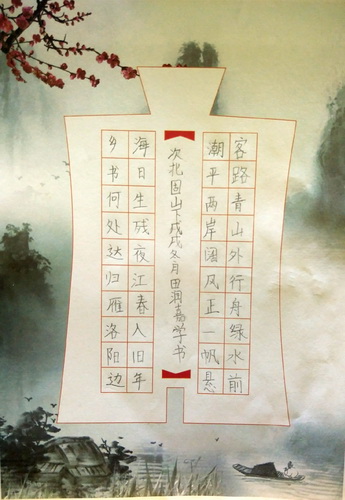 客路青山外行舟绿水前
潮平两岸阔风正一帆悬
次北固山下戊戌冬月田润嘉学书
海日生残夜江春入旧年
乡书何处达归雁洛阳边